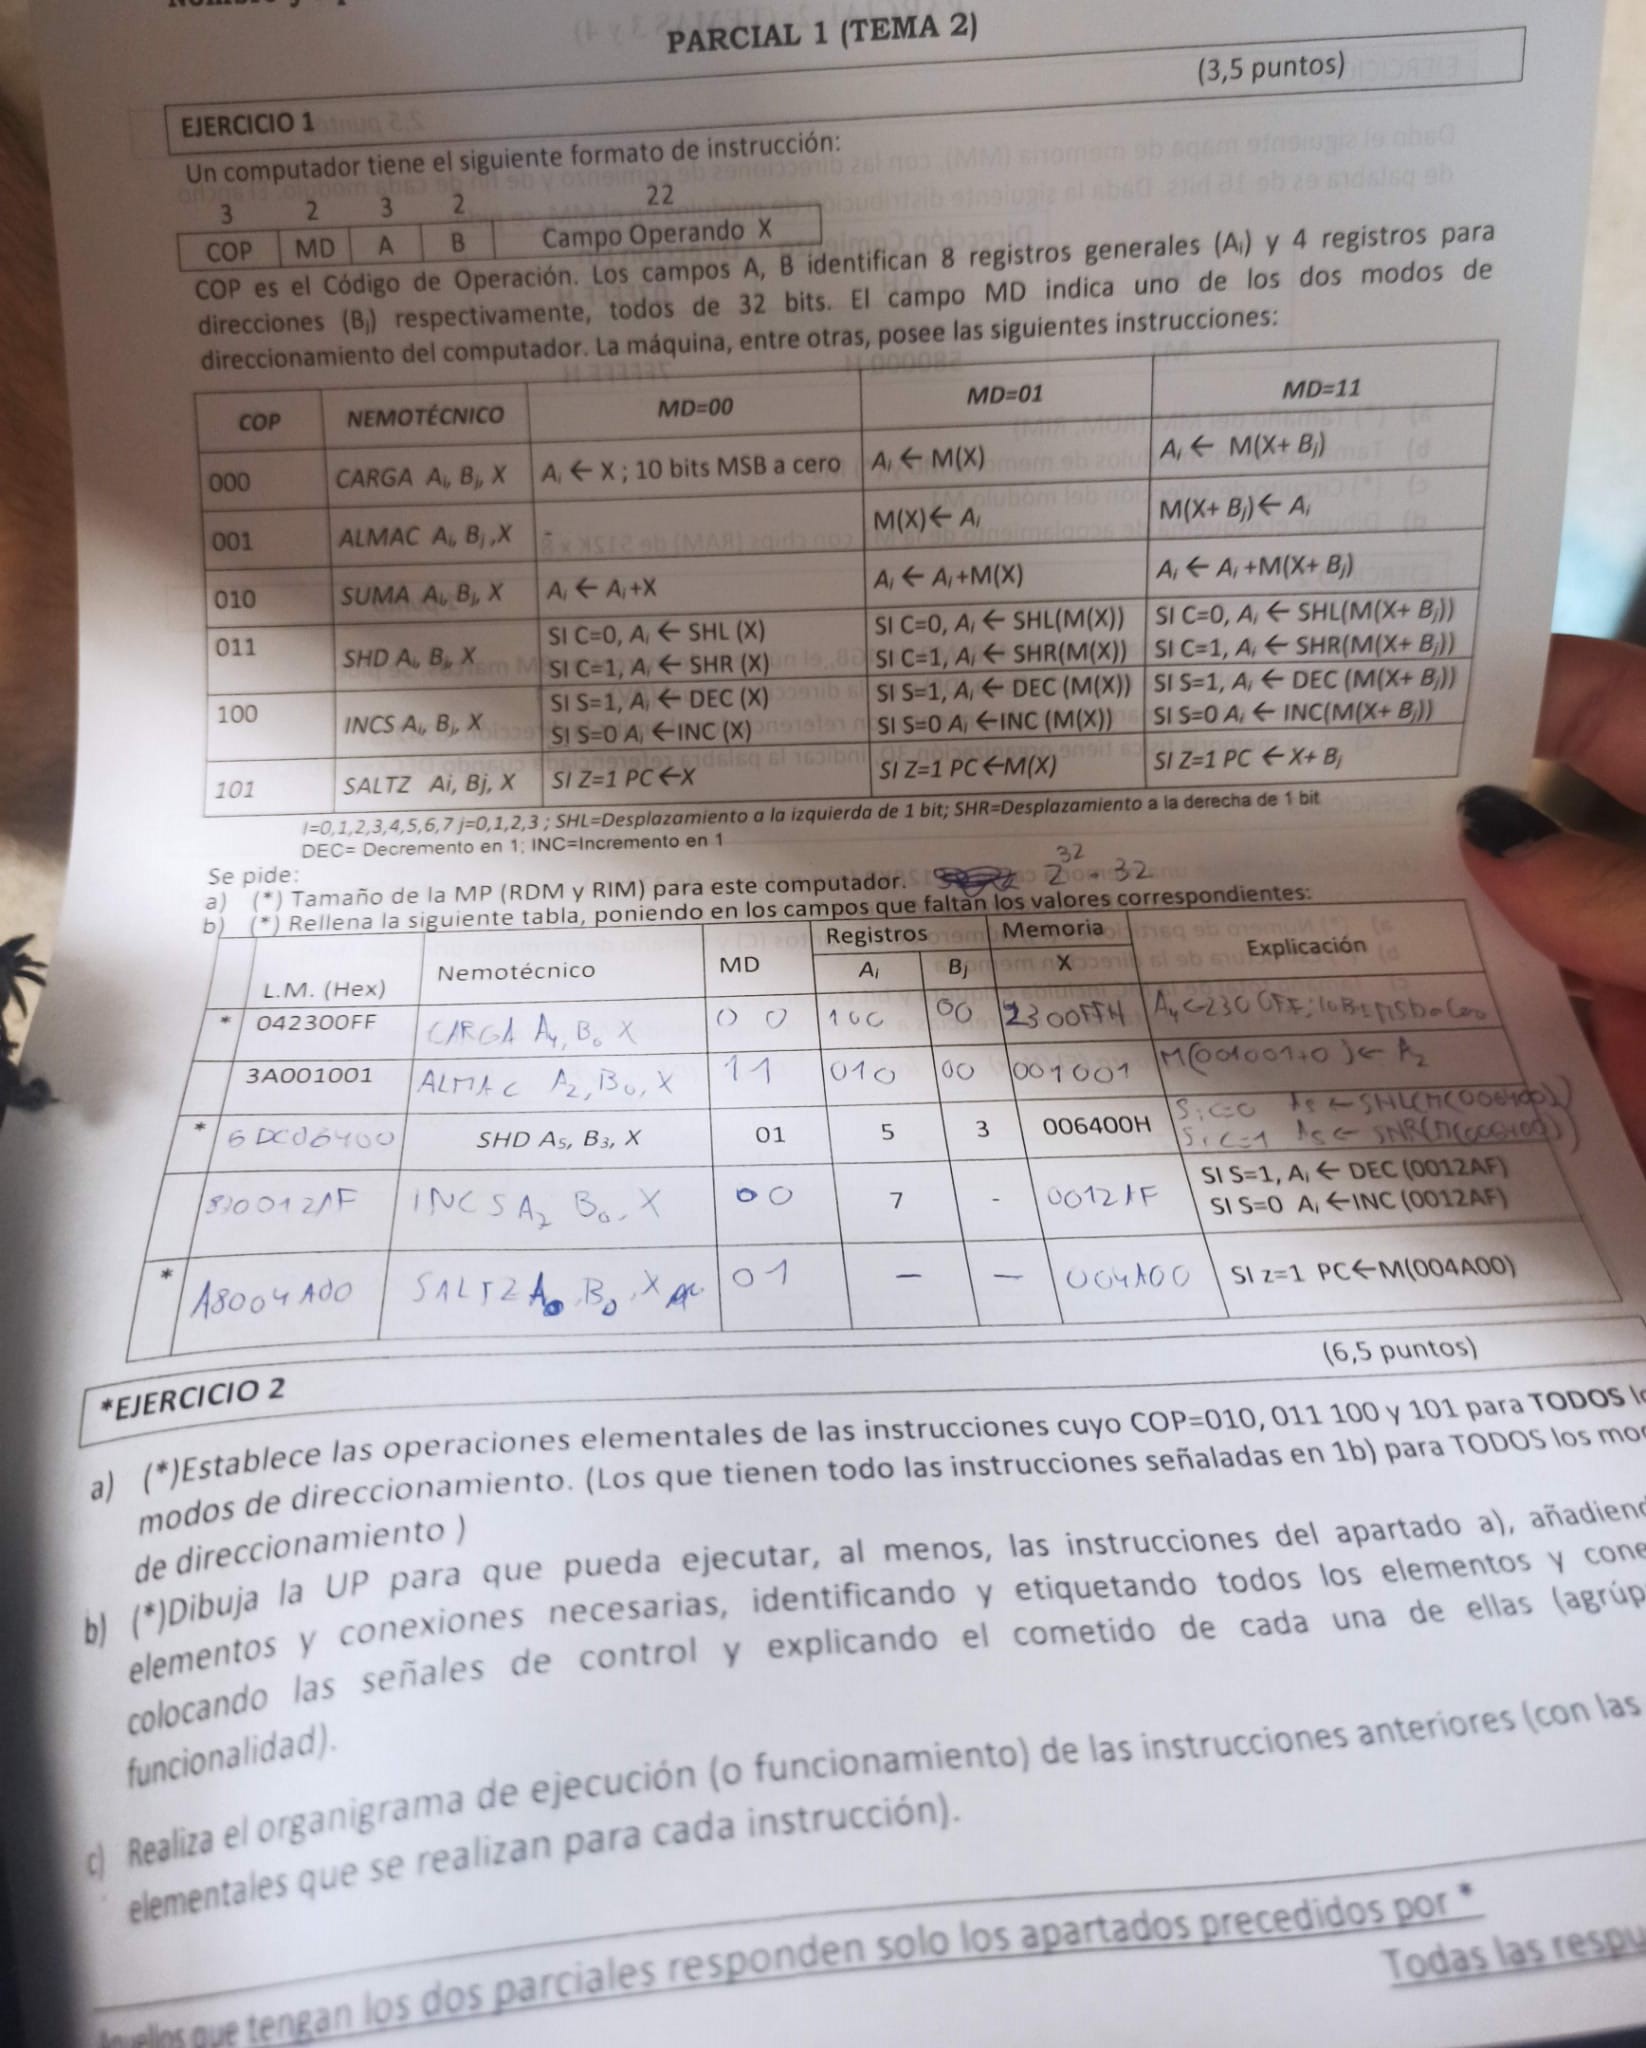 PARCIAL 1 (TEMA 2)
(3,5 puntos)
EJERCICIO 1
Un computador tiene el siguiente formato de instrucción:
3 2 3 2 22
COP MD A B Campo Operando X
COP es el Código de Operación. Los campos A, B identifican 8 registros generales (Aᵢ) y 4 registros para
direcciones (Bⱼ) respectivamente, todos de 32 bits. El campo MD indica uno de los dos modos de
direccionamiento del computador. La máquina, entre otras, posee las siguientes instrucciones:
COP NEMOTÉCNICO MD=00 MD=01 MD=11
000 CARGA Aᵢ, Bⱼ, X Aᵢ ← X ; 10 bits MSB a cero Aᵢ ← M(X) Aᵢ ← M(X+ Bⱼ)
001 ALMAC Aᵢ, Bⱼ ,X - M(X)← Aᵢ M(X+ Bⱼ)← Aᵢ
010 SUMA Aᵢ, Bⱼ, X Aᵢ ← Aᵢ+X Aᵢ ← Aᵢ+M(X) Aᵢ ← Aᵢ +M(X+ Bⱼ)
011 SHD Aᵢ, Bⱼ, X SI C=0, Aᵢ ← SHL (X) SI C=0, Aᵢ ← SHL(M(X)) SI C=0, Aᵢ ← SHL(M(X+ Bⱼ))
SI C=1, Aᵢ ← SHR (X) SI C=1, Aᵢ ← SHR(M(X)) SI C=1, Aᵢ ← SHR(M(X+ Bⱼ))
100 INCS Aᵢ, Bⱼ, X SI S=1, Aᵢ ← DEC (X) SI S=1, Aᵢ ← DEC (M(X)) SI S=1, Aᵢ ← DEC (M(X+ Bⱼ))
SI S=0 Aᵢ ←INC (X) SI S=0 Aᵢ ←INC (M(X)) SI S=0 Aᵢ ← INC(M(X+ Bⱼ))
101 SALTZ Ai, Bj, X SI Z=1 PC←X SI Z=1 PC←M(X) SI Z=1 PC ← X+ Bⱼ
I=0,1,2,3,4,5,6,7 j=0,1,2,3 ; SHL=Desplazamiento a la izquierda de 1 bit; SHR=Desplazamiento a la derecha de 1 bit
DEC= Decremento en 1; INC=Incremento en 1
Se pide:
a) (*) Tamaño de la MP (RDM y RIM) para este computador. 2³² · 32
b) (*) Rellena la siguiente tabla, poniendo en los campos que faltan los valores correspondientes:
L.M. (Hex) Nemotécnico MD Registros Memoria Explicación
Aᵢ Bⱼ X
* 042300FF CARGA A₄, B₀ X 0 0 100 00 2300FFH
3A001001 ALMAC A₂, B₀, X 11 010 00 001001 M(001001+0) ← A₂
* 6DC06400 SHD A₅, B₃, X 01 5 3 006400H Si C=0 A5 ← SHL(M(006400))
Si C=1 A5 ← SHR(M(006400))
870012AF INCS A₂ B₀, X 00 7 - 0012AF SI S=1, Aᵢ ← DEC (0012AF)
SI S=0 Aᵢ ←INC (0012AF)
* A8004A00 SALTZ A₀, B₀, X 01 — — 004A00 SI z=1 PC←M(004A00)
(6,5 puntos)
*EJERCICIO 2
a) (*)Establece las operaciones elementales de las instrucciones cuyo COP=010, 011 100 y 101 para TODOS
modos de direccionamiento. (Los que tienen todo las instrucciones señaladas en 1b) para TODOS los
de direccionamiento )
b) (*)Dibuja la UP para que pueda ejecutar, al menos, las instrucciones del apartado a), añadiend
elementos y conexiones necesarias, identificando y etiquetando todos los elementos y cone
colocando las señales de control y explicando el cometido de cada una de ellas (agrúp
funcionalidad).
c) Realiza el organigrama de ejecución (o funcionamiento) de las instrucciones anteriores (con las
elementales que se realizan para cada instrucción).
que tengan los dos parciales responden solo los apartados precedidos por *
Todas las respu